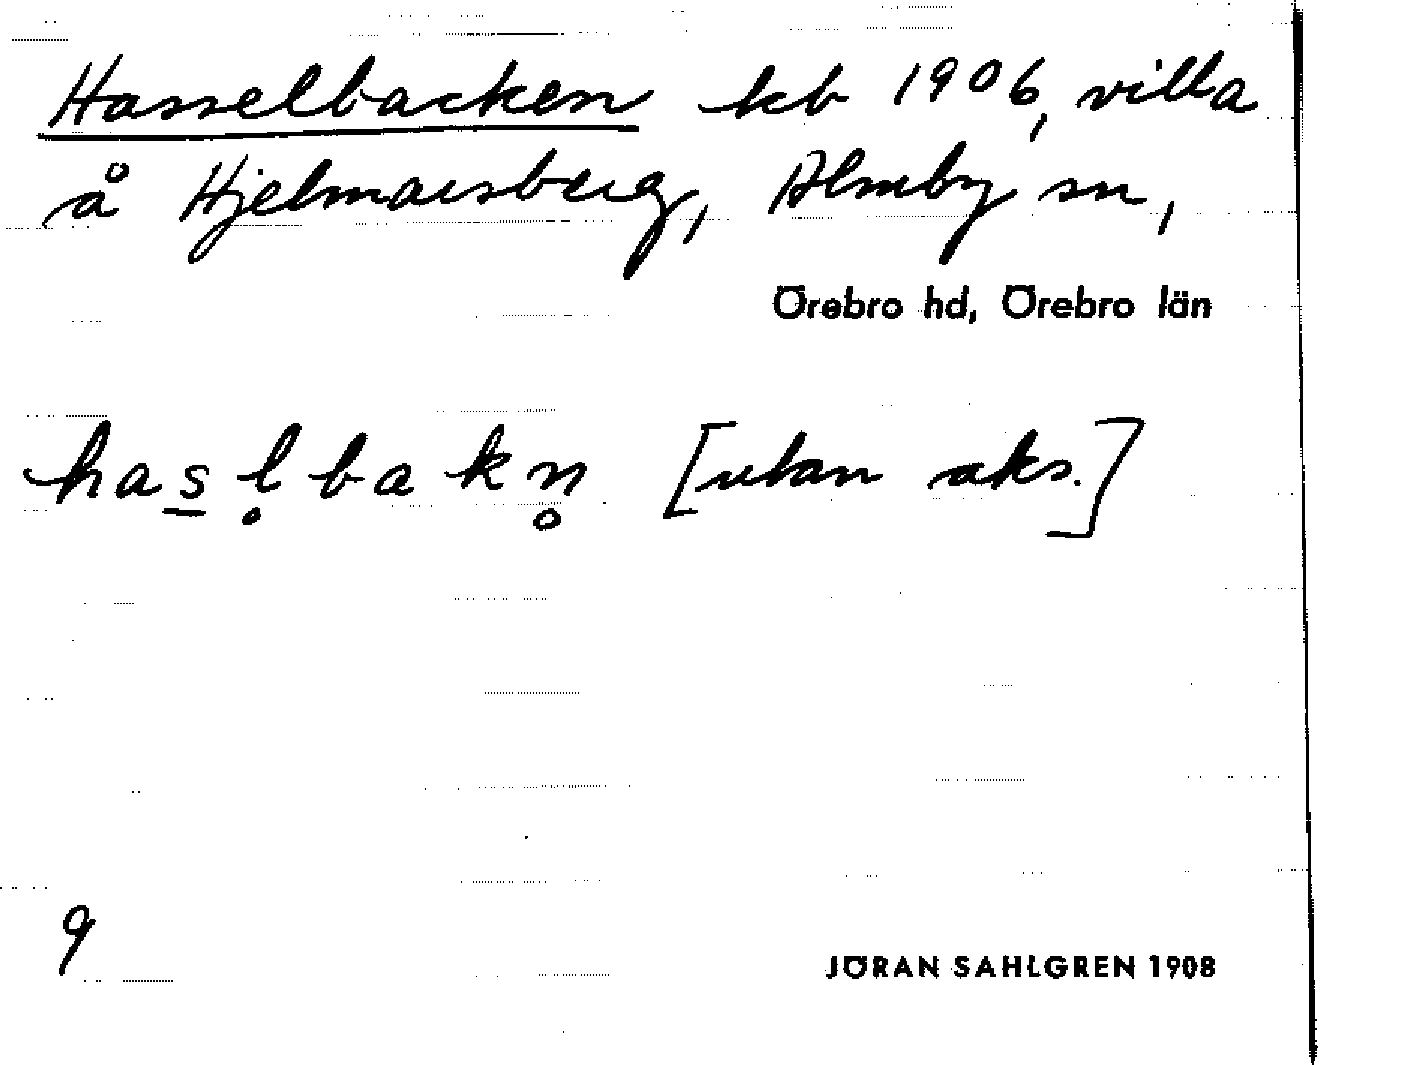 Hasselbacken kb 1906, villa
å Hjelmarsberg, Almby sn,
Örebro hd, Örebro län
has̲ḷbakn̥ [utan aks.]
9
JÖRAN SAHLGREN 1908